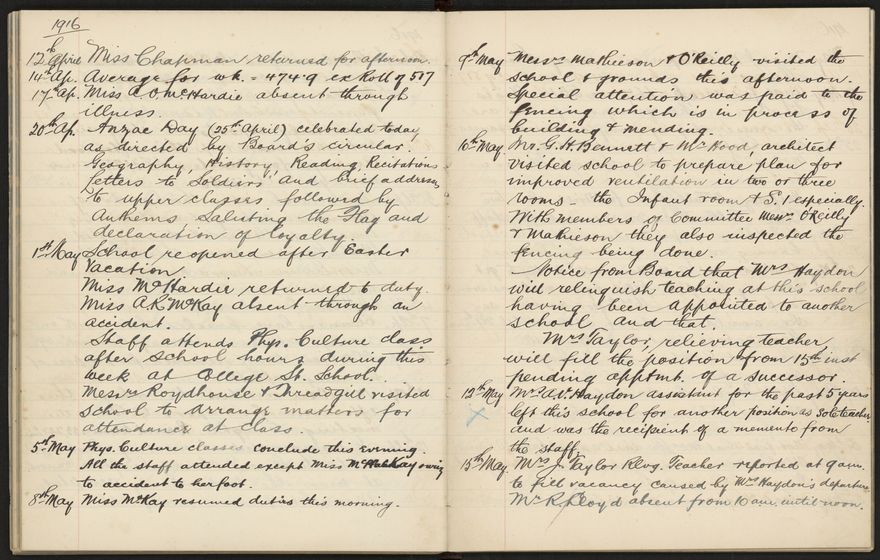 1916
12th April Miss Chapman returned for afternoon.
14th Ap. Average for wk. = 474.9 ex Roll of 517
17th Ap. Miss A. O. McHardie absent through
illness.
20th Ap. Anzac Day (25th April) celebrated today
as directed by Board's circular.
Geography, History, Reading, Recitations
Letters to Soldiers and brief addresses
to upper classes followed by
Anthems Saluting the Flag and
declaration of loyalty.
1st May School reopened after Easter
Vacation.
Miss McHardie returned to duty.
Miss A R McKay absent through an
accident.
Staff attends Phys. Culture class
after School hours during this
week at College St. School.
Messrs Roydhouse & Threadgill visited
school to arrange matters for
attendance at class.
5th May Phys. Culture classes conclude this evening.
All the staff attended except Miss McKay owing
to accident to her foot.
8th May Miss McKay resumed duties this morning.
9th May Messrs Mathieson & O'Reilly visited the
School & grounds this afternoon.
Special attention was paid to the
fencing which is in process of
building & mending.
10th May Mr. G. H. Bennett & Mr Hood architect
visited school to prepare plan for
improved ventilation in two or three
rooms - the Infant room & S. 1 especially.
With members of Committee Messrs O'Reilly
& Mathieson they also inspected the
fencing being done.
Notice from Board that Mrs Haydon
will relinquish teaching at this school
having been appointed to another
school and that.
Mrs Taylor, relieving teacher
will fill the position from 15th inst
pending apptmt. of a successor.
12th May Mr A. C. Haydon assistant for the past 5 years
left this school for another position as sole teacher
and was the recipient of a memento from
the staff.
15th May. Mrs J. Taylor Rlvg. Teacher reported at 9 am.
to fill vacancy caused by Mrs Haydon's departure.
Mr R. Lloyd absent from 10 am. until noon.